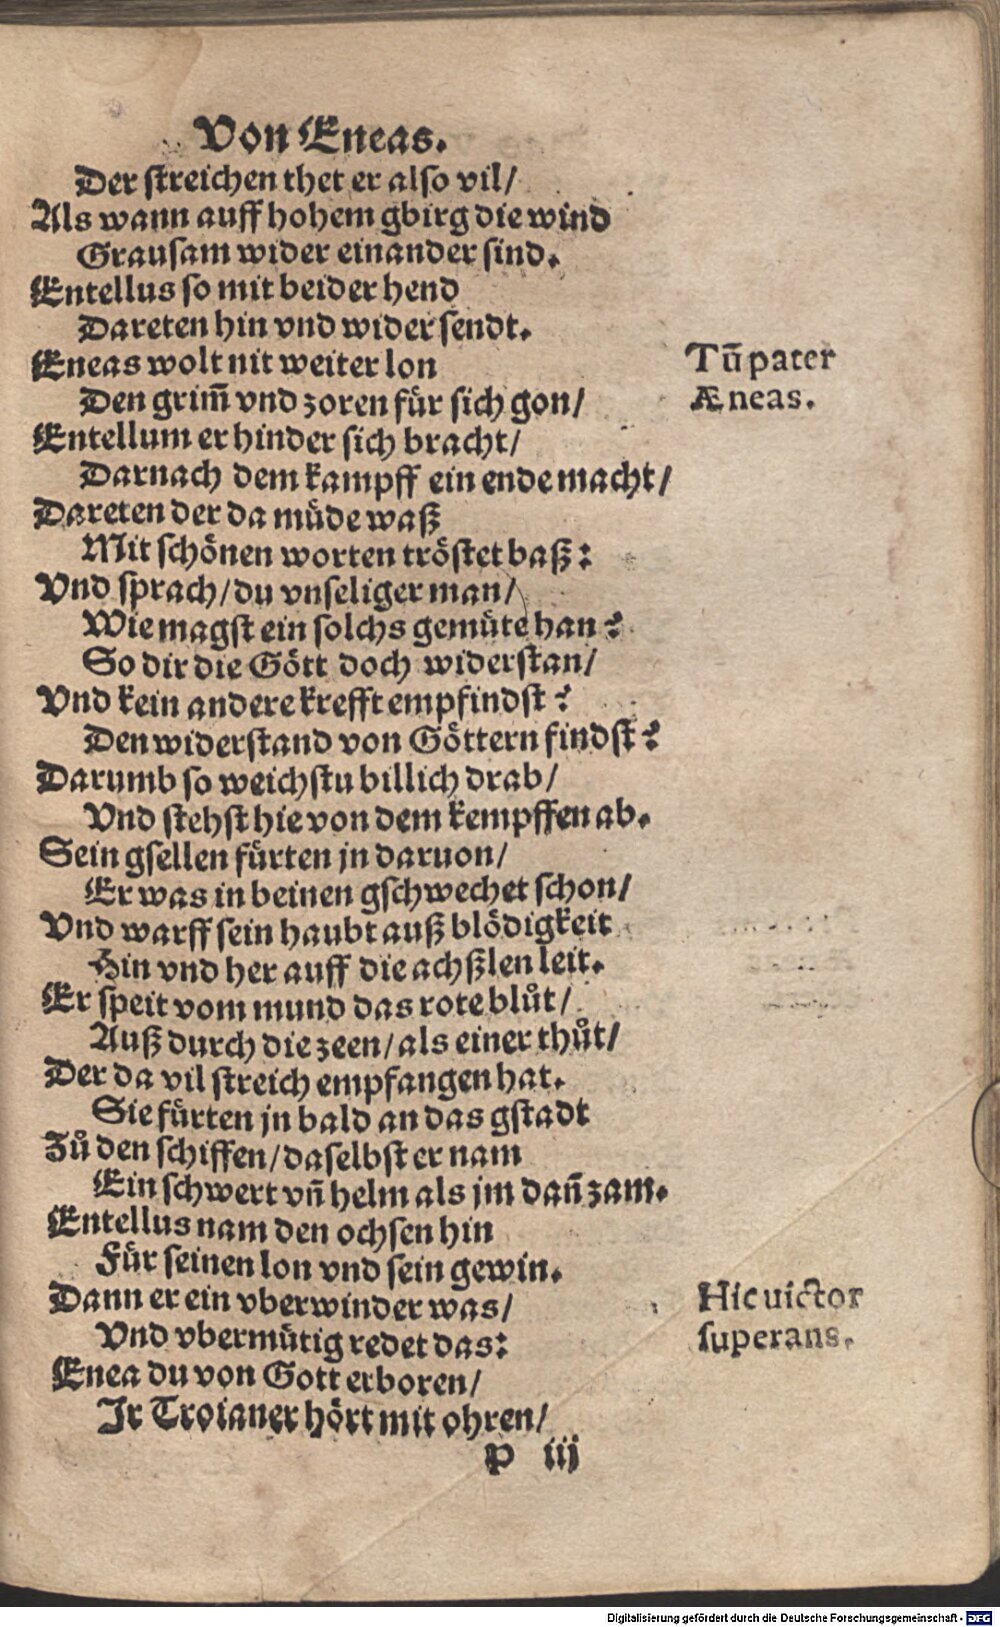 Von Eneas.
Der streichen thet er also vil/
Als wann auff hohem gbirg die wind
Grausam wider einander sind.
Entellus so mit beider hend
Dareten hin vnd wider sendt.
Eneas wolt nit weiter lon
Tū pater
Den grim̄ vnd zoren fuͤr sich gon/
Æneas.
Entellum er hinder sich bracht/
Darnach dem kampff ein ende macht/
Dareten der da muͤde waß
Mit schoͤnen worten troͤstet baß:
Vnd sprach/ du vnseliger man/
Wie magst ein solchs gemuͤte han?
So dir die Goͤtt doch widerstan/
Vnd kein andere krefft empfindst?
Den widerstand von Goͤttern findst?
Darumb so weichstu billich drab/
Vnd stehst hie von dem kempffen ab.
Sein gsellen fuͤrten jn daruon/
Er was in beinen gschwechet schon/
Vnd warff sein haubt auß bloͤdigkeit
Hin vnd her auff die achßlen leit.
Er speit vom mund das rote bluͦt/
Auß durch die zeen/ als einer thuͦt/
Der da vil streich empfangen hat.
Sie fuͤrten jn bald an das gstadt
Zuͦ den schiffen/ daselbst er nam
Ein schwert vn̄ helm als jm dan̄ zam.
Entellus nam den ochsen hin
Fuͤr seinen lon vnd sein gewin.
Dann er ein vberwinder was/
Hic uictor
Vnd vbermuͤtig redet das:
superans.
Enea du von Gott erboren/
Jr Troianer hoͤrt mit ohren/
p iij
Digitalisierung gefördert durch die Deutsche Forschungsgemeinschaft - DFG